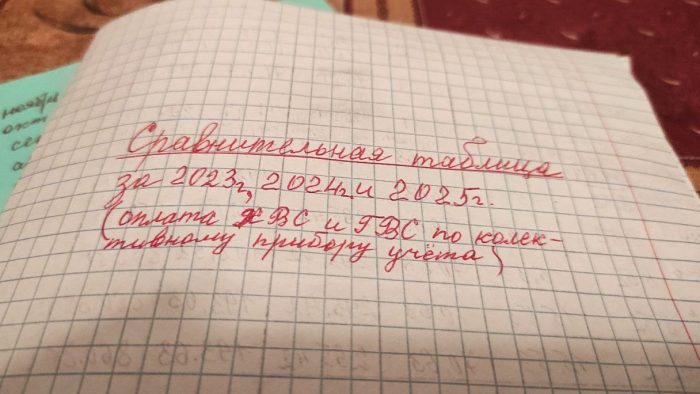 Сравнительная таблица
за 2023г, 2024г и 2025г.
(оплата ХВС и ГВС по колек-
тивному прибору учёта)